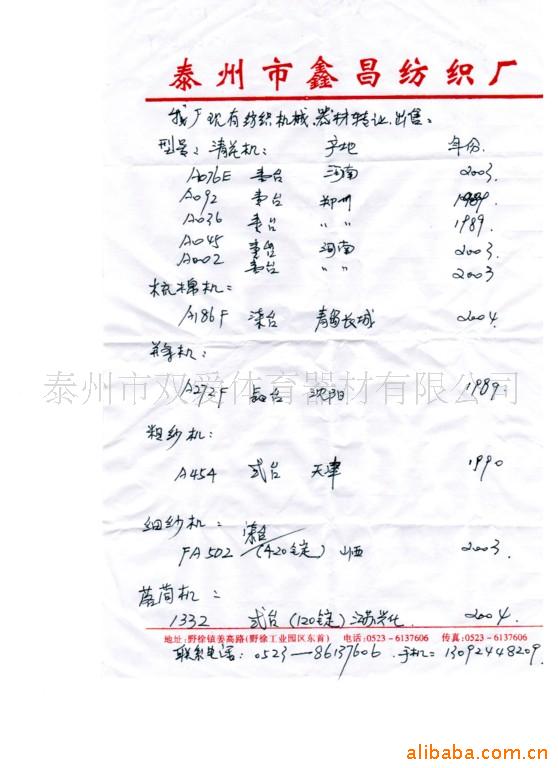 泰州市鑫昌纺织厂
我厂现有纺织机械器材转让出售:
型号:清花机: 产地 年份
A076E 壹台 河南 2003
A092 壹台 郑州 1989
A036 壹台 〃 〃 1989.
A045 壹台 河南 2003.
A002 壹台 〃 〃 2003
梳棉机:
A186F 柒台 青岛长城 2004.
并条机:
泰州市双爱体育器材有限公司
A272F 台 沈阳 1989.
粗纱机:
A454 弍台 天津 1990
细纱机: 柒台
FA502 (420锭) 山西 2003.
落筒机:
1332 弍台 (120锭) 江苏兴化 2004.
地址:野徐镇姜高路(野徐工业园区东首) 电话:0523-6137606 传真:0523-6137606
联系电话:0523—86137606. 手机:13092448209.
alibaba.com.cn